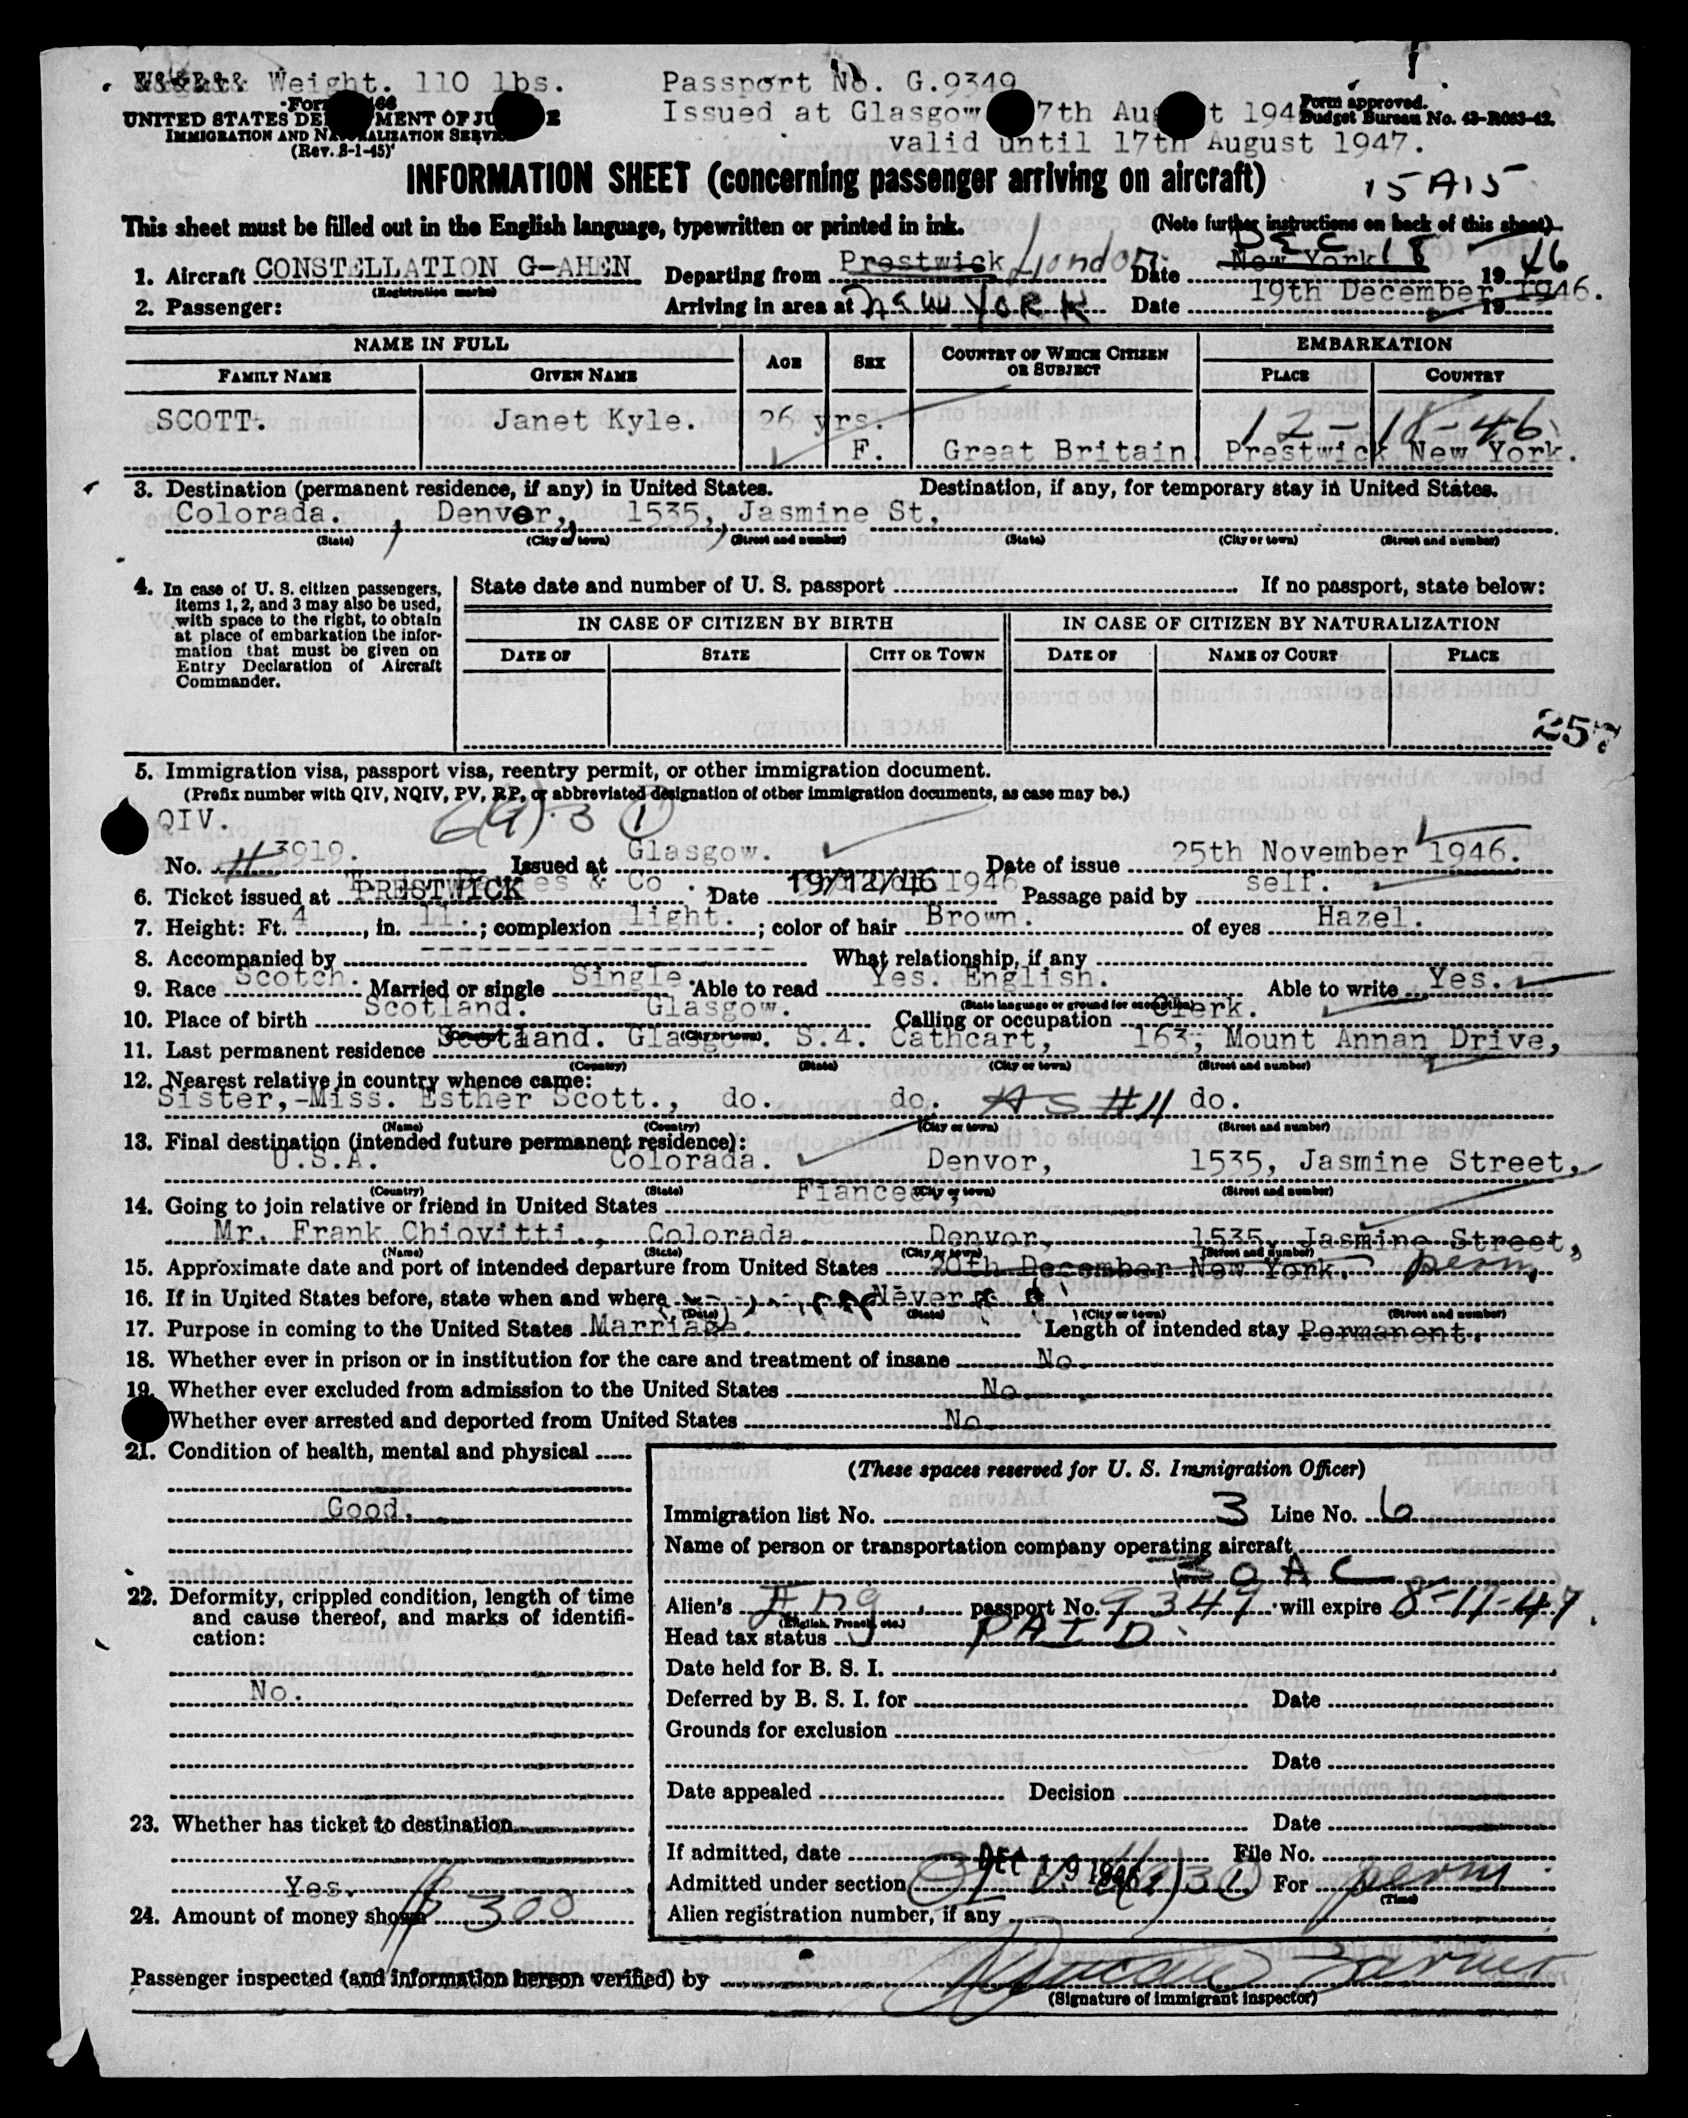 Weight. 110 lbs. Passport No. G.9349
UNITED STATES DEPARTMENT OF JUSTICE Issued at Glasgow 17th August 194 Form approved.
IMMIGRATION AND NATURALIZATION SERVICE Budget Bureau No. 43-R083-42.
(Rev. 8-1-45) valid until 17th August 1947.
INFORMATION SHEET (concerning passenger arriving on aircraft) 15 A15
This sheet must be filled out in the English language, typewritten or printed in ink. (Note further instructions on back of this sheet)
1. Aircraft CONSTELLATION G-AHEN Departing from Prestwick London Date New York DEC 18 1946
(Registration marks)
2. Passenger: Arriving in area at NEW YORK Date 19th December 1946. 19
NAME IN FULL AGE SEX COUNTRY OF WHICH CITIZEN OR SUBJECT EMBARKATION
FAMILY NAME GIVEN NAME PLACE COUNTRY
SCOTT. Janet Kyle. 26 yrs. 12-18-46
F. Great Britain Prestwick New York.
3. Destination (permanent residence, if any) in United States. Destination, if any, for temporary stay in United States.
Colorada. , Denver, 1535, Jasmine St.
(State) (City or town) (Street and number) (State) (City or town) (Street and number)
4. In case of U. S. citizen passengers, items 1, 2, and 3 may also be used, with space to the right, to obtain at place of embarkation the information that must be given on Entry Declaration of Aircraft Commander.
State date and number of U. S. passport If no passport, state below:
IN CASE OF CITIZEN BY BIRTH IN CASE OF CITIZEN BY NATURALIZATION
DATE OF STATE CITY OR TOWN DATE OF NAME OF COURT PLACE
257
5. Immigration visa, passport visa, reentry permit, or other immigration document.
(Prefix number with QIV, NQIV, PV, RP, or abbreviated designation of other immigration documents, as case may be.)
QIV. 6(a)-3 (1)
No. # 3919. Issued at Glasgow. Date of issue 25th November 1946.
6. Ticket issued at PRESTWICK & Co. Date 19/12/46 1946 Passage paid by self.
7. Height: Ft. 4, in. 11. ; complexion light. ; color of hair Brown. of eyes Hazel.
8. Accompanied by ----------------- What relationship, if any
9. Race Scotch. Married or single Single. Able to read Yes. English. Able to write Yes.
(State language or ground for exemption)
10. Place of birth Scotland. Glasgow. Calling or occupation Clerk.
(City or town)
11. Last permanent residence Scotland. Glasgow. S.4. Cathcart, 163, Mount Annan Drive,
(Country) (State) (City or town) (Street and number)
12. Nearest relative in country whence came:
Sister,-Miss. Esther Scott., do. do. AS #11 do.
(Name) (Country) (City or town) (Street and number)
13. Final destination (intended future permanent residence):
U.S.A. Colorada. Denvor, 1535, Jasmine Street,
(Country) (State) (City or town) (Street and number)
14. Going to join relative or friend in United States Fiancee.,
Mr. Frank Chiovitti., Colorada. Denvor, 1535, Jasmine Street,
(Name) (State) (City or town) (Street and number)
15. Approximate date and port of intended departure from United States 20th December New York. perm.
16. If in United States before, state when and where Never
(Date) (State) (City or town) (Street and number)
17. Purpose in coming to the United States Marriage. Length of intended stay Permanent.
18. Whether ever in prison or in institution for the care and treatment of insane No.
19. Whether ever excluded from admission to the United States No.
Whether ever arrested and deported from United States No.
21. Condition of health, mental and physical
Good.
22. Deformity, crippled condition, length of time and cause thereof, and marks of identification:
No.
23. Whether has ticket to destination
Yes.
24. Amount of money shown $300
(These spaces reserved for U. S. Immigration Officer)
Immigration list No. 3 Line No. 6
Name of person or transportation company operating aircraft
BOAC
Alien's Eng passport No. 9349 will expire 8-17-47.
(English, French, etc.)
Head tax status PAID
Date held for B. S. I.
Deferred by B. S. I. for Date
Grounds for exclusion
Date
Date appealed Decision
Date
If admitted, date DEC 19 1946 File No.
Admitted under section 6(a)3(1) For perm.
(Time)
Alien registration number, if any
Passenger inspected (and information hereon verified) by
(Signature of immigrant inspector)